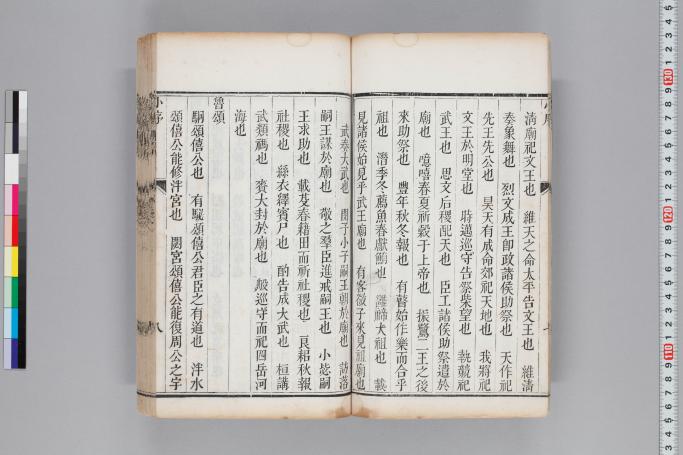 清廟祀文王也　維天之命太平告文王也　維淸
奏象舞也　烈文成王卽政諸侯助祭也　天作祀
先王先公也　昊天有成命郊祀天地也　我將祀
文王於明堂也　時邁巡守告祭柴望也　執競祀
武王也　思文后稷配天也　臣工諸侯助祭遣於
廟也　噫嘻春夏祈穀于上帝也　振鷺二王之後
來助祭也　豐年秋冬報也　有瞽始作樂而合乎
祖也　潛季冬薦魚春獻鮪也　雝禘大祖也　載
見諸侯始見乎武王廟也　有客微子來見祖廟也
武奏大武也　閔子小子嗣王朝於廟也　訪落
嗣王謀於廟也　敬之羣臣進戒嗣王也　小毖嗣
王求助也　載芟春籍田而祈社稷也　良耜秋報
社稷也　絲衣繹賓尸也　酌告成大武也　桓講
武類禡也　賚大封於廟也　般巡守而祀四岳河
海也
魯頌
駉頌僖公也　有駜頌僖公君臣之有道也　泮水
頌僖公能修泮宮也　閟宮頌僖公能復周公之宇
小序
八